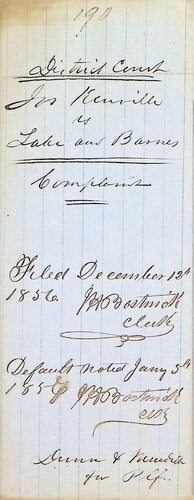 190
District Court
Jos Renville
vs
Lake and Barnes
Complaint
Filed December 12th
1856.
J R Bostwick
Clerk
Default noted Jany 5th
J R Bostwick
Clk
Dunn &
for Plff.